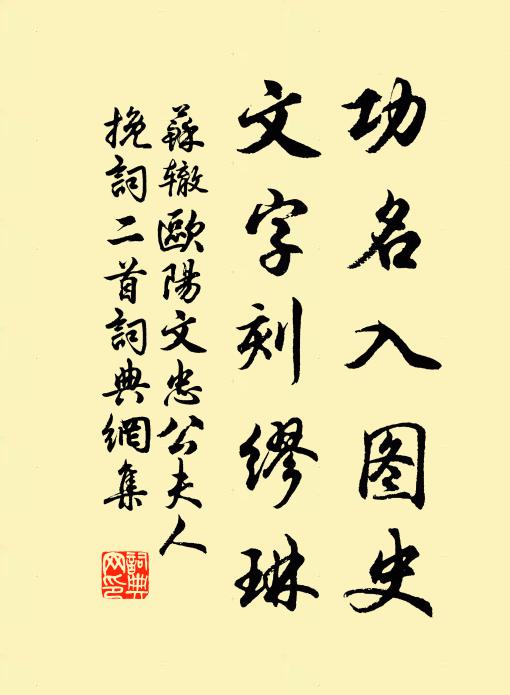 功名入图史
文字刻缪琳
蘇辙歐陽文忠公夫人
挽詞二首詞典網集
詞典
网印